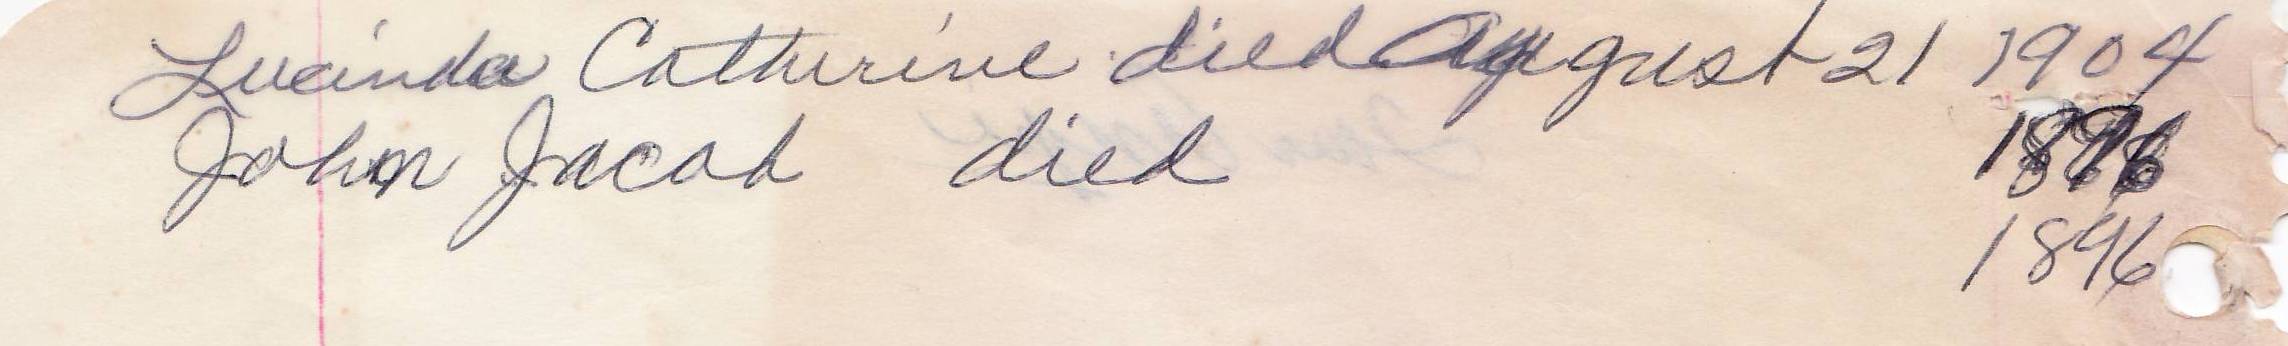 Lucinda Catherine died August 21 1904
John Jacob died
1896